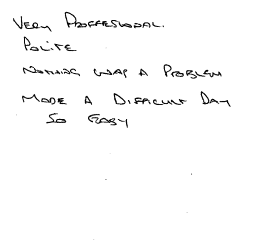 VERY PROFFESIONAL.
POLITE
NOTHING WAS A PROBLEM
MADE A DIFFICULT DAY
SO EASY